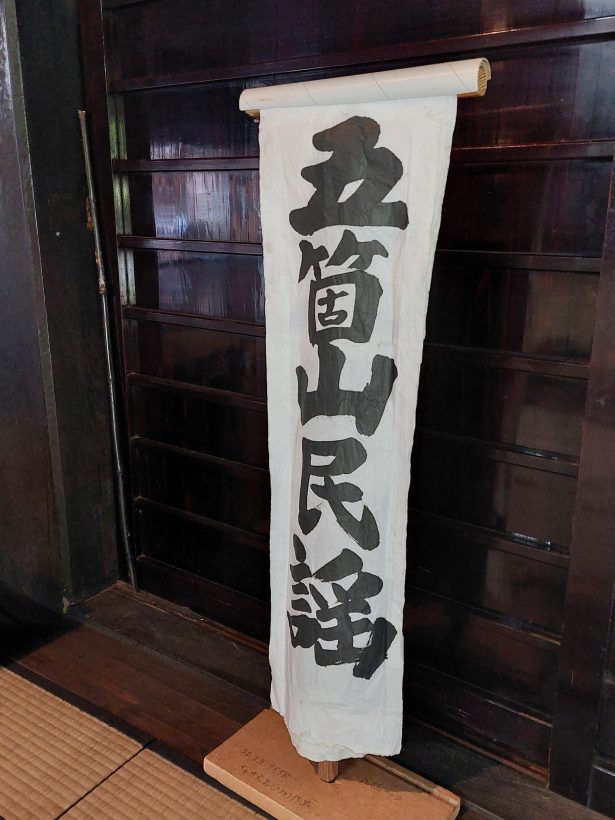 五箇山民謡